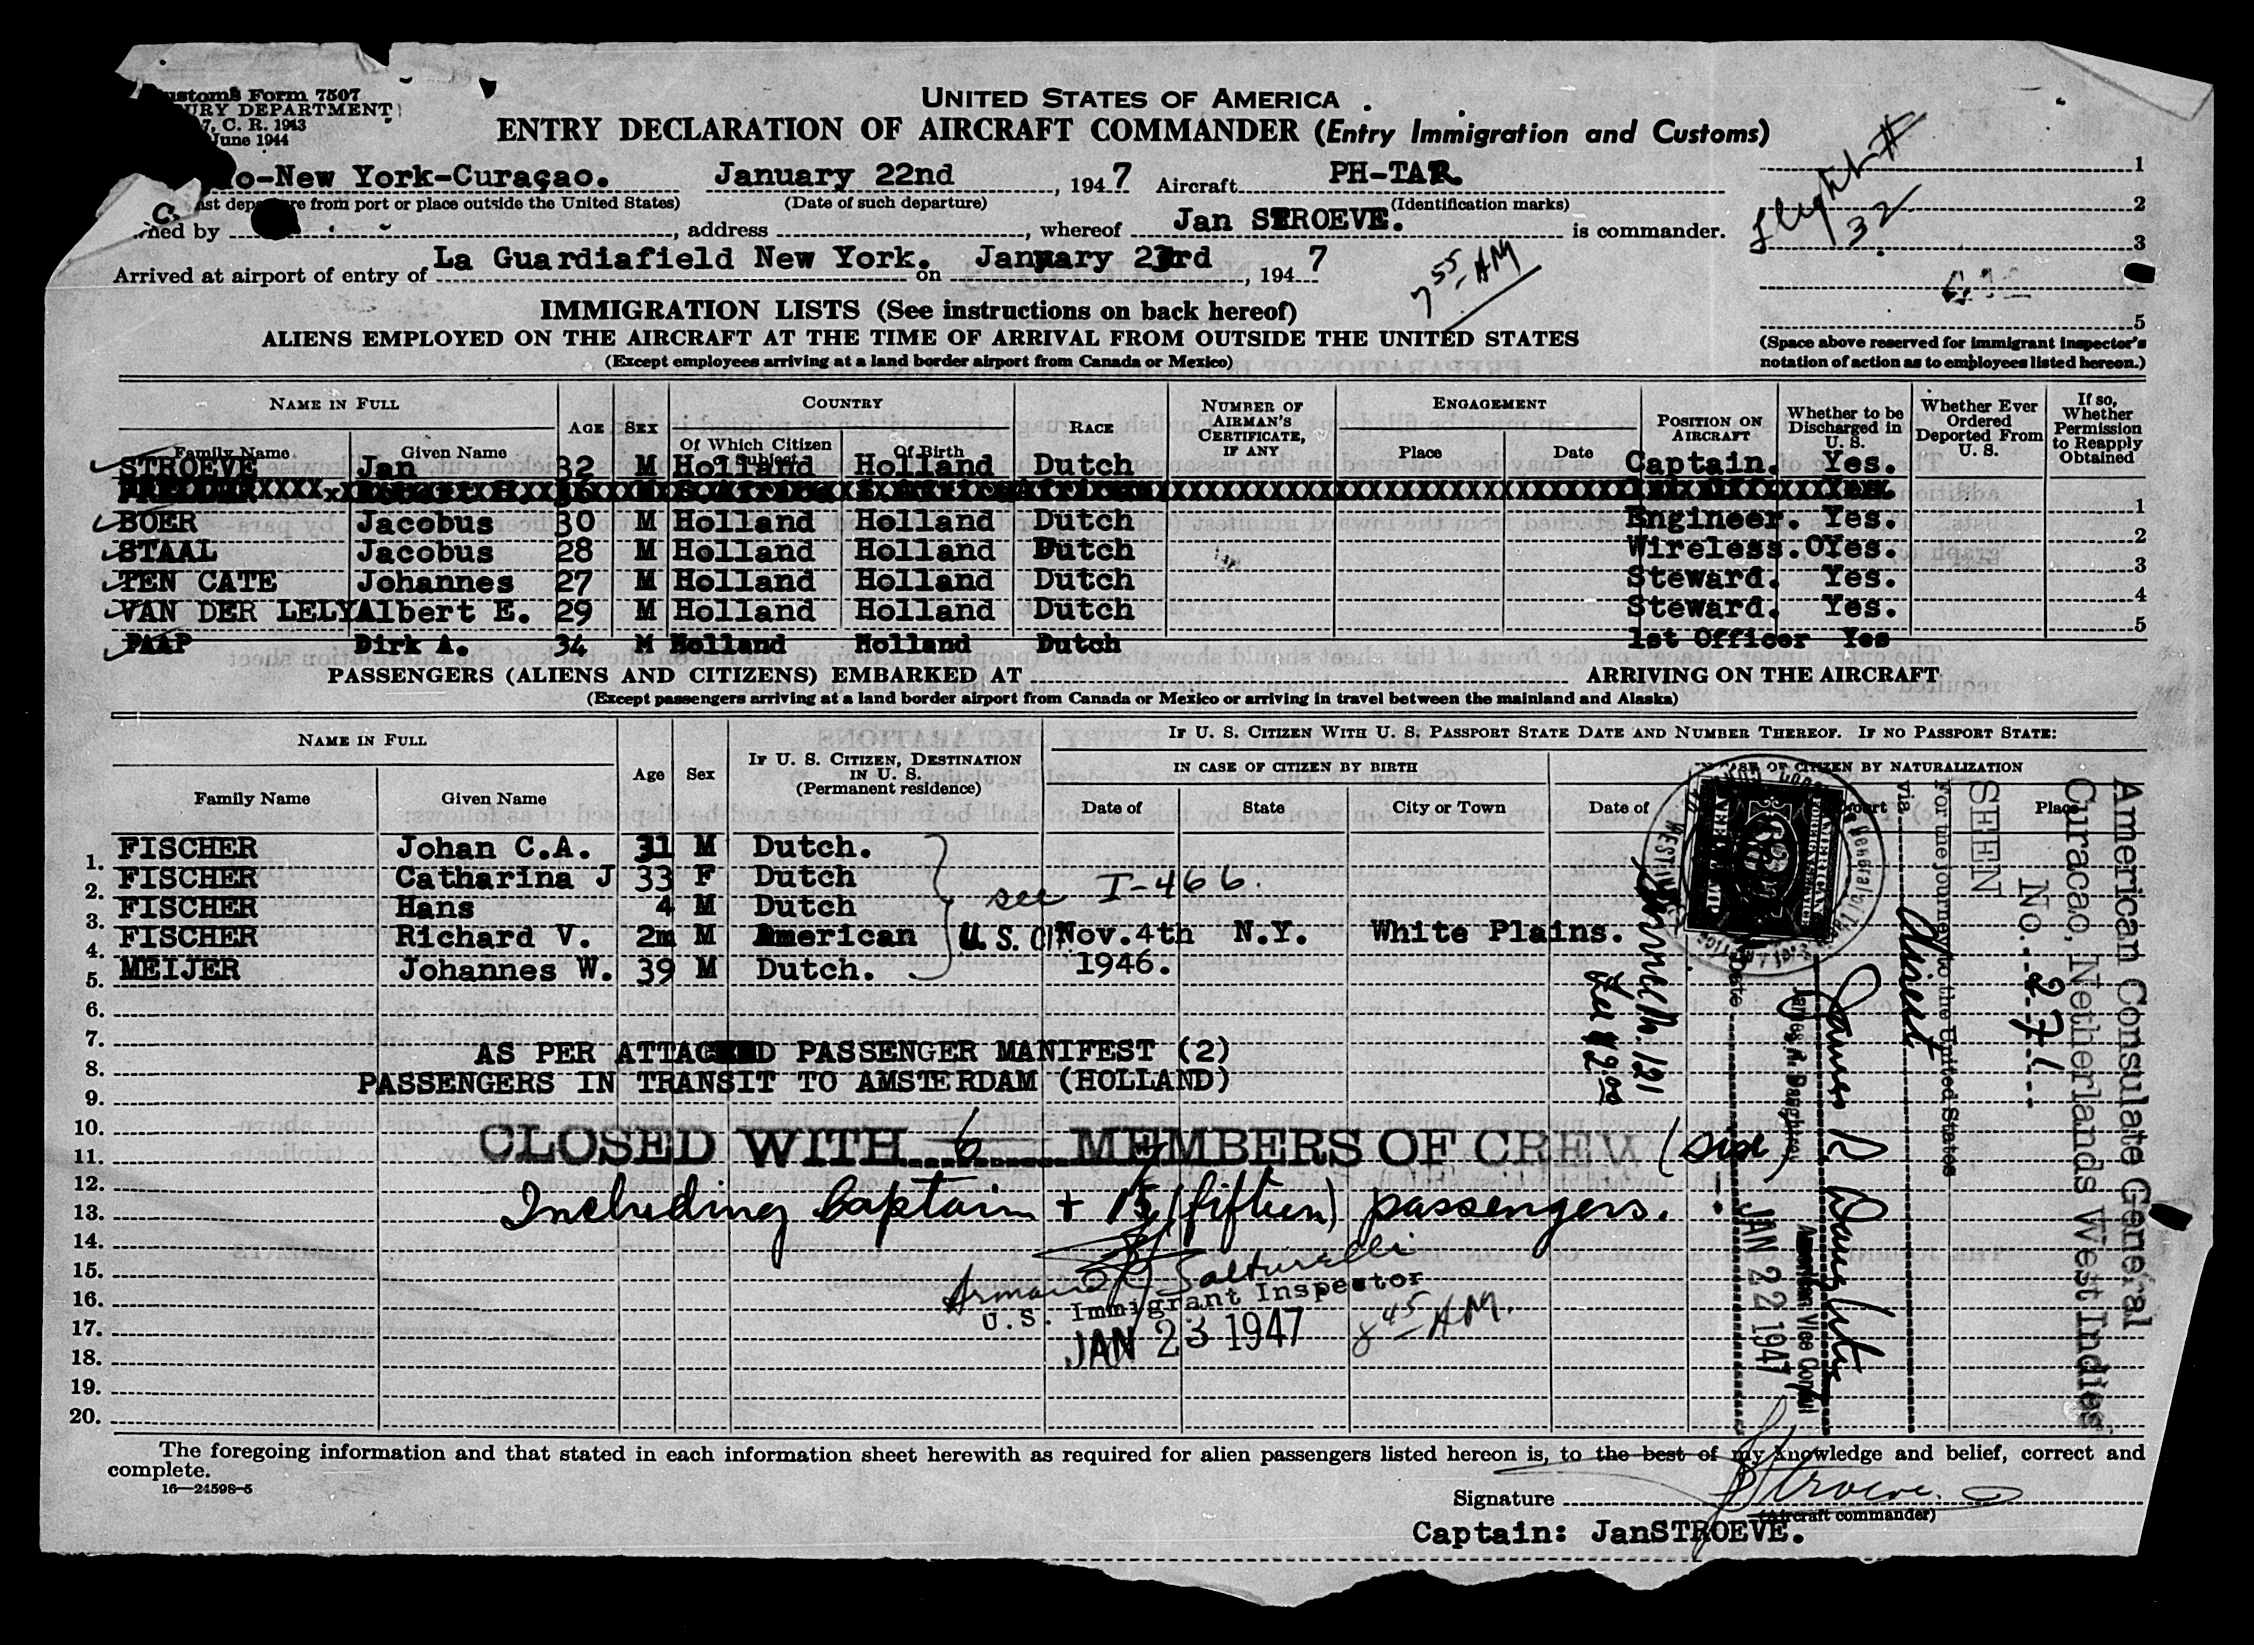 ustoms Form 7507
URY DEPARTMENT
7, C. R. 1943
June 1944
UNITED STATES OF AMERICA
ENTRY DECLARATION OF AIRCRAFT COMMANDER (Entry Immigration and Customs)
o-New York-Curaçao. January 22nd, 1947 Aircraft PH-TAR.
from port or place outside the United States) (Date of such departure) (Identification marks)
ned by , address , whereof Jan STROEVE. is commander.
Arrived at airport of entry of La Guardiafield New York. on January 23rd, 1947
7 55 AM
Flight #
32
1
2
3
5
(Space above reserved for immigrant inspector's
notation of action as to employees listed hereon.)
IMMIGRATION LISTS (See instructions on back hereof)
ALIENS EMPLOYED ON THE AIRCRAFT AT THE TIME OF ARRIVAL FROM OUTSIDE THE UNITED STATES
(Except employees arriving at a land border airport from Canada or Mexico)
NAME IN FULL AGE SEX COUNTRY RACE NUMBER OF AIRMAN'S CERTIFICATE, IF ANY ENGAGEMENT POSITION ON AIRCRAFT Whether to be Discharged in U. S. Whether Ever Ordered Deported From U. S. If so, Whether Permission to Reapply Obtained
Family Name Given Name Of Which Citizen or Subject Of Birth Place Date
STROEVE Jan 32 M Holland Holland Dutch Captain. Yes.
BOER Jacobus 30 M Holland Holland Dutch Engineer. Yes. 1
STAAL Jacobus 28 M Holland Holland Dutch Wireless.O Yes. 2
TEN CATE Johannes 27 M Holland Holland Dutch Steward. Yes. 3
VAN DER LELY Albert E. 29 M Holland Holland Dutch Steward. Yes. 4
PAAP Dirk A. 34 M Holland Holland Dutch 1st Officer Yes 5
PASSENGERS (ALIENS AND CITIZENS) EMBARKED AT ARRIVING ON THE AIRCRAFT
(Except passengers arriving at a land border airport from Canada or Mexico or arriving in travel between the mainland and Alaska)
NAME IN FULL Age Sex IF U. S. CITIZEN, DESTINATION IN U. S. (Permanent residence) IF U. S. CITIZEN WITH U. S. PASSPORT STATE DATE AND NUMBER THEREOF. IF NO PASSPORT STATE:
IN CASE OF CITIZEN BY BIRTH IN CASE OF CITIZEN BY NATURALIZATION
Family Name Given Name Date of State City or Town Date of Court Place
1. FISCHER Johan C.A. 31 M Dutch.
2. FISCHER Catharina J 33 F Dutch see I-466.
3. FISCHER Hans 4 M Dutch
4. FISCHER Richard V. 2m M American U.S. Cit Nov. 4th N.Y. White Plains.
5. MEIJER Johannes W. 39 M Dutch. 1946.
6.
7.
AS PER ATTACHED PASSENGER MANIFEST (2)
8.
PASSENGERS IN TRANSIT TO AMSTERDAM (HOLLAND)
9.
10.
11. CLOSED WITH 6 MEMBERS OF CREW (six)
12.
13. Including Captain + 15 (fifteen) passengers.
14.
15.
16. U.S. Immigrant Inspector
17. JAN 23 1947 8 45 AM.
18.
19.
20.
American Consulate General
Curacao, Netherlands West Indies
No. 271
SEEN
For the journey to the United States
via direct
James R. Daughtry
American Vice Consul
Date JAN 22 1947
The foregoing information and that stated in each information sheet herewith as required for alien passengers listed hereon is, to the best of my knowledge and belief, correct and
complete.
16—24598-5
Signature JStroeve.
(Aircraft commander)
Captain: JanSTROEVE.